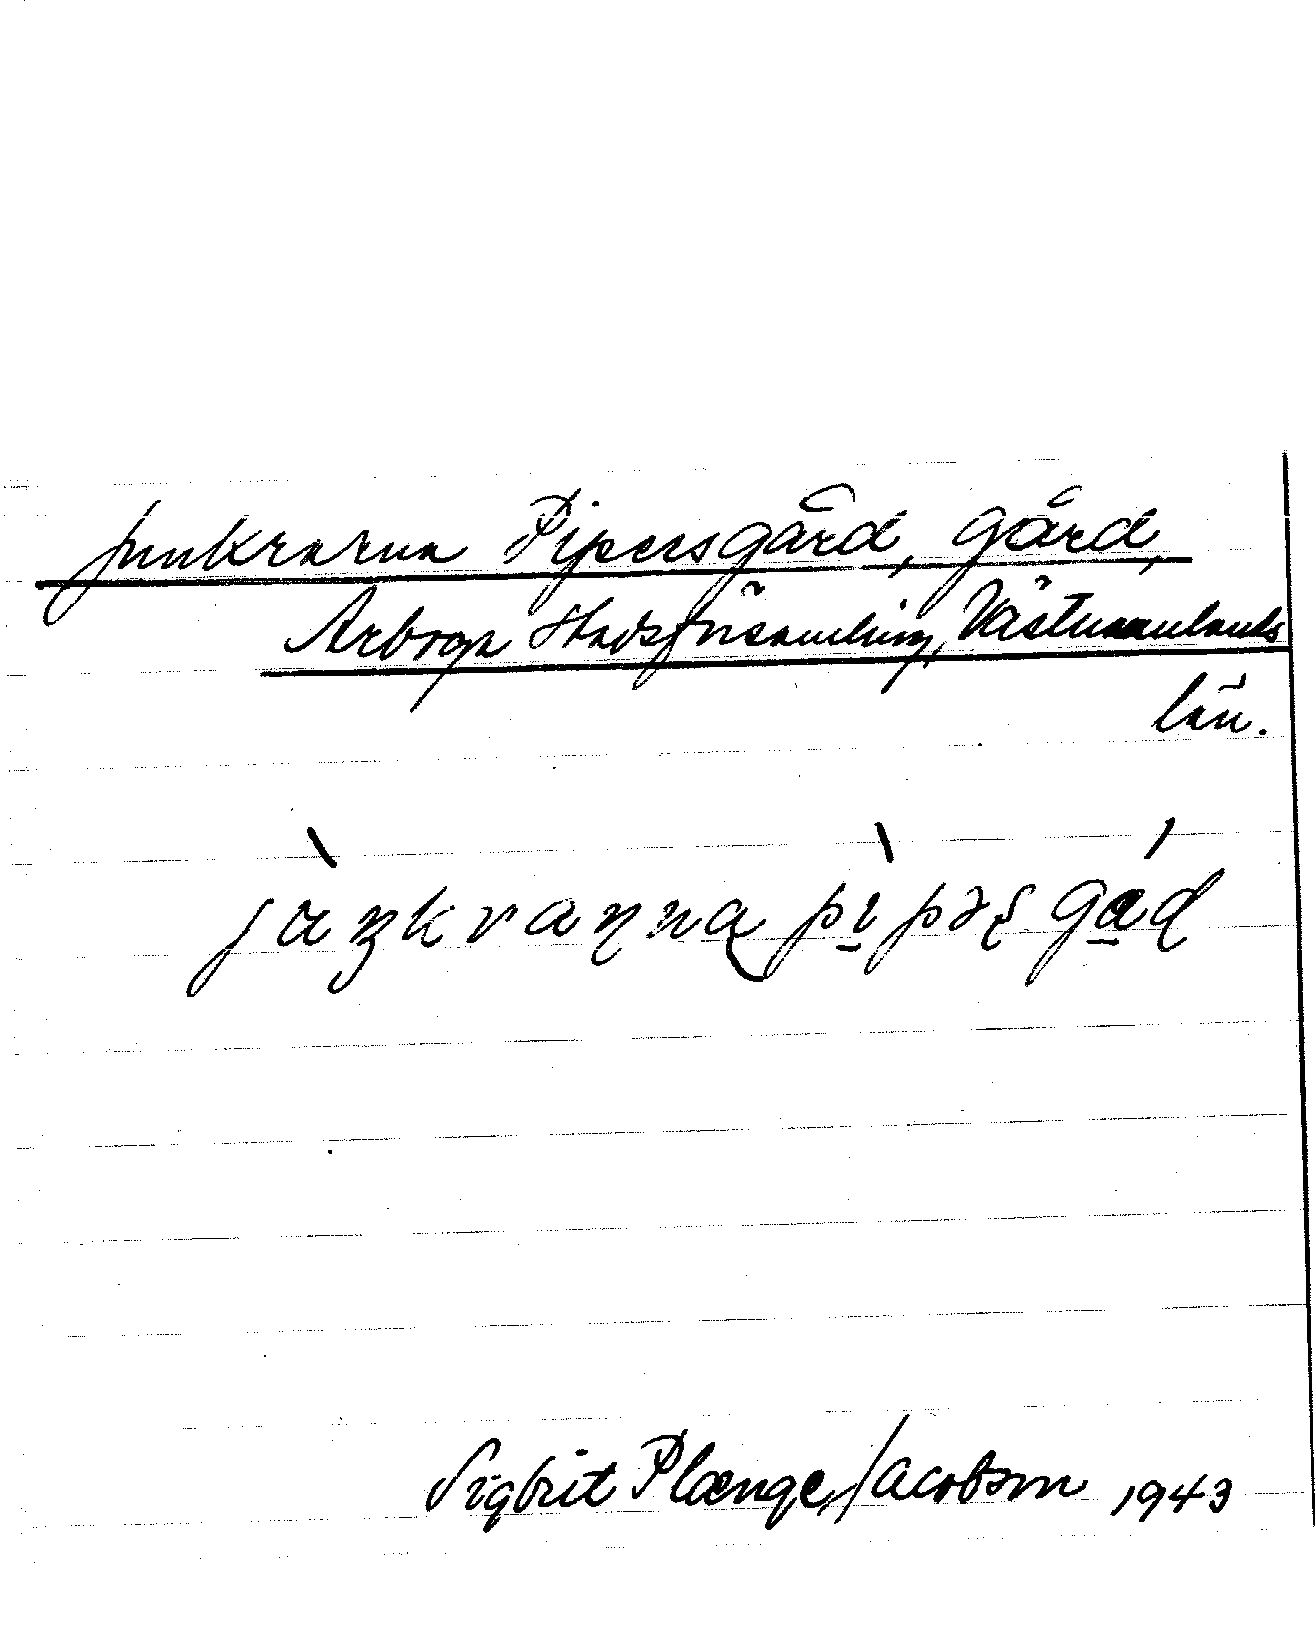 Junkrarna Pipersgård, gård,
Arboga Stadsförsamling, Västmanlands
län.
jàŋkraɳɳa pìpəʂgáɖ
Sigbrit Plænge Jacobson 1943